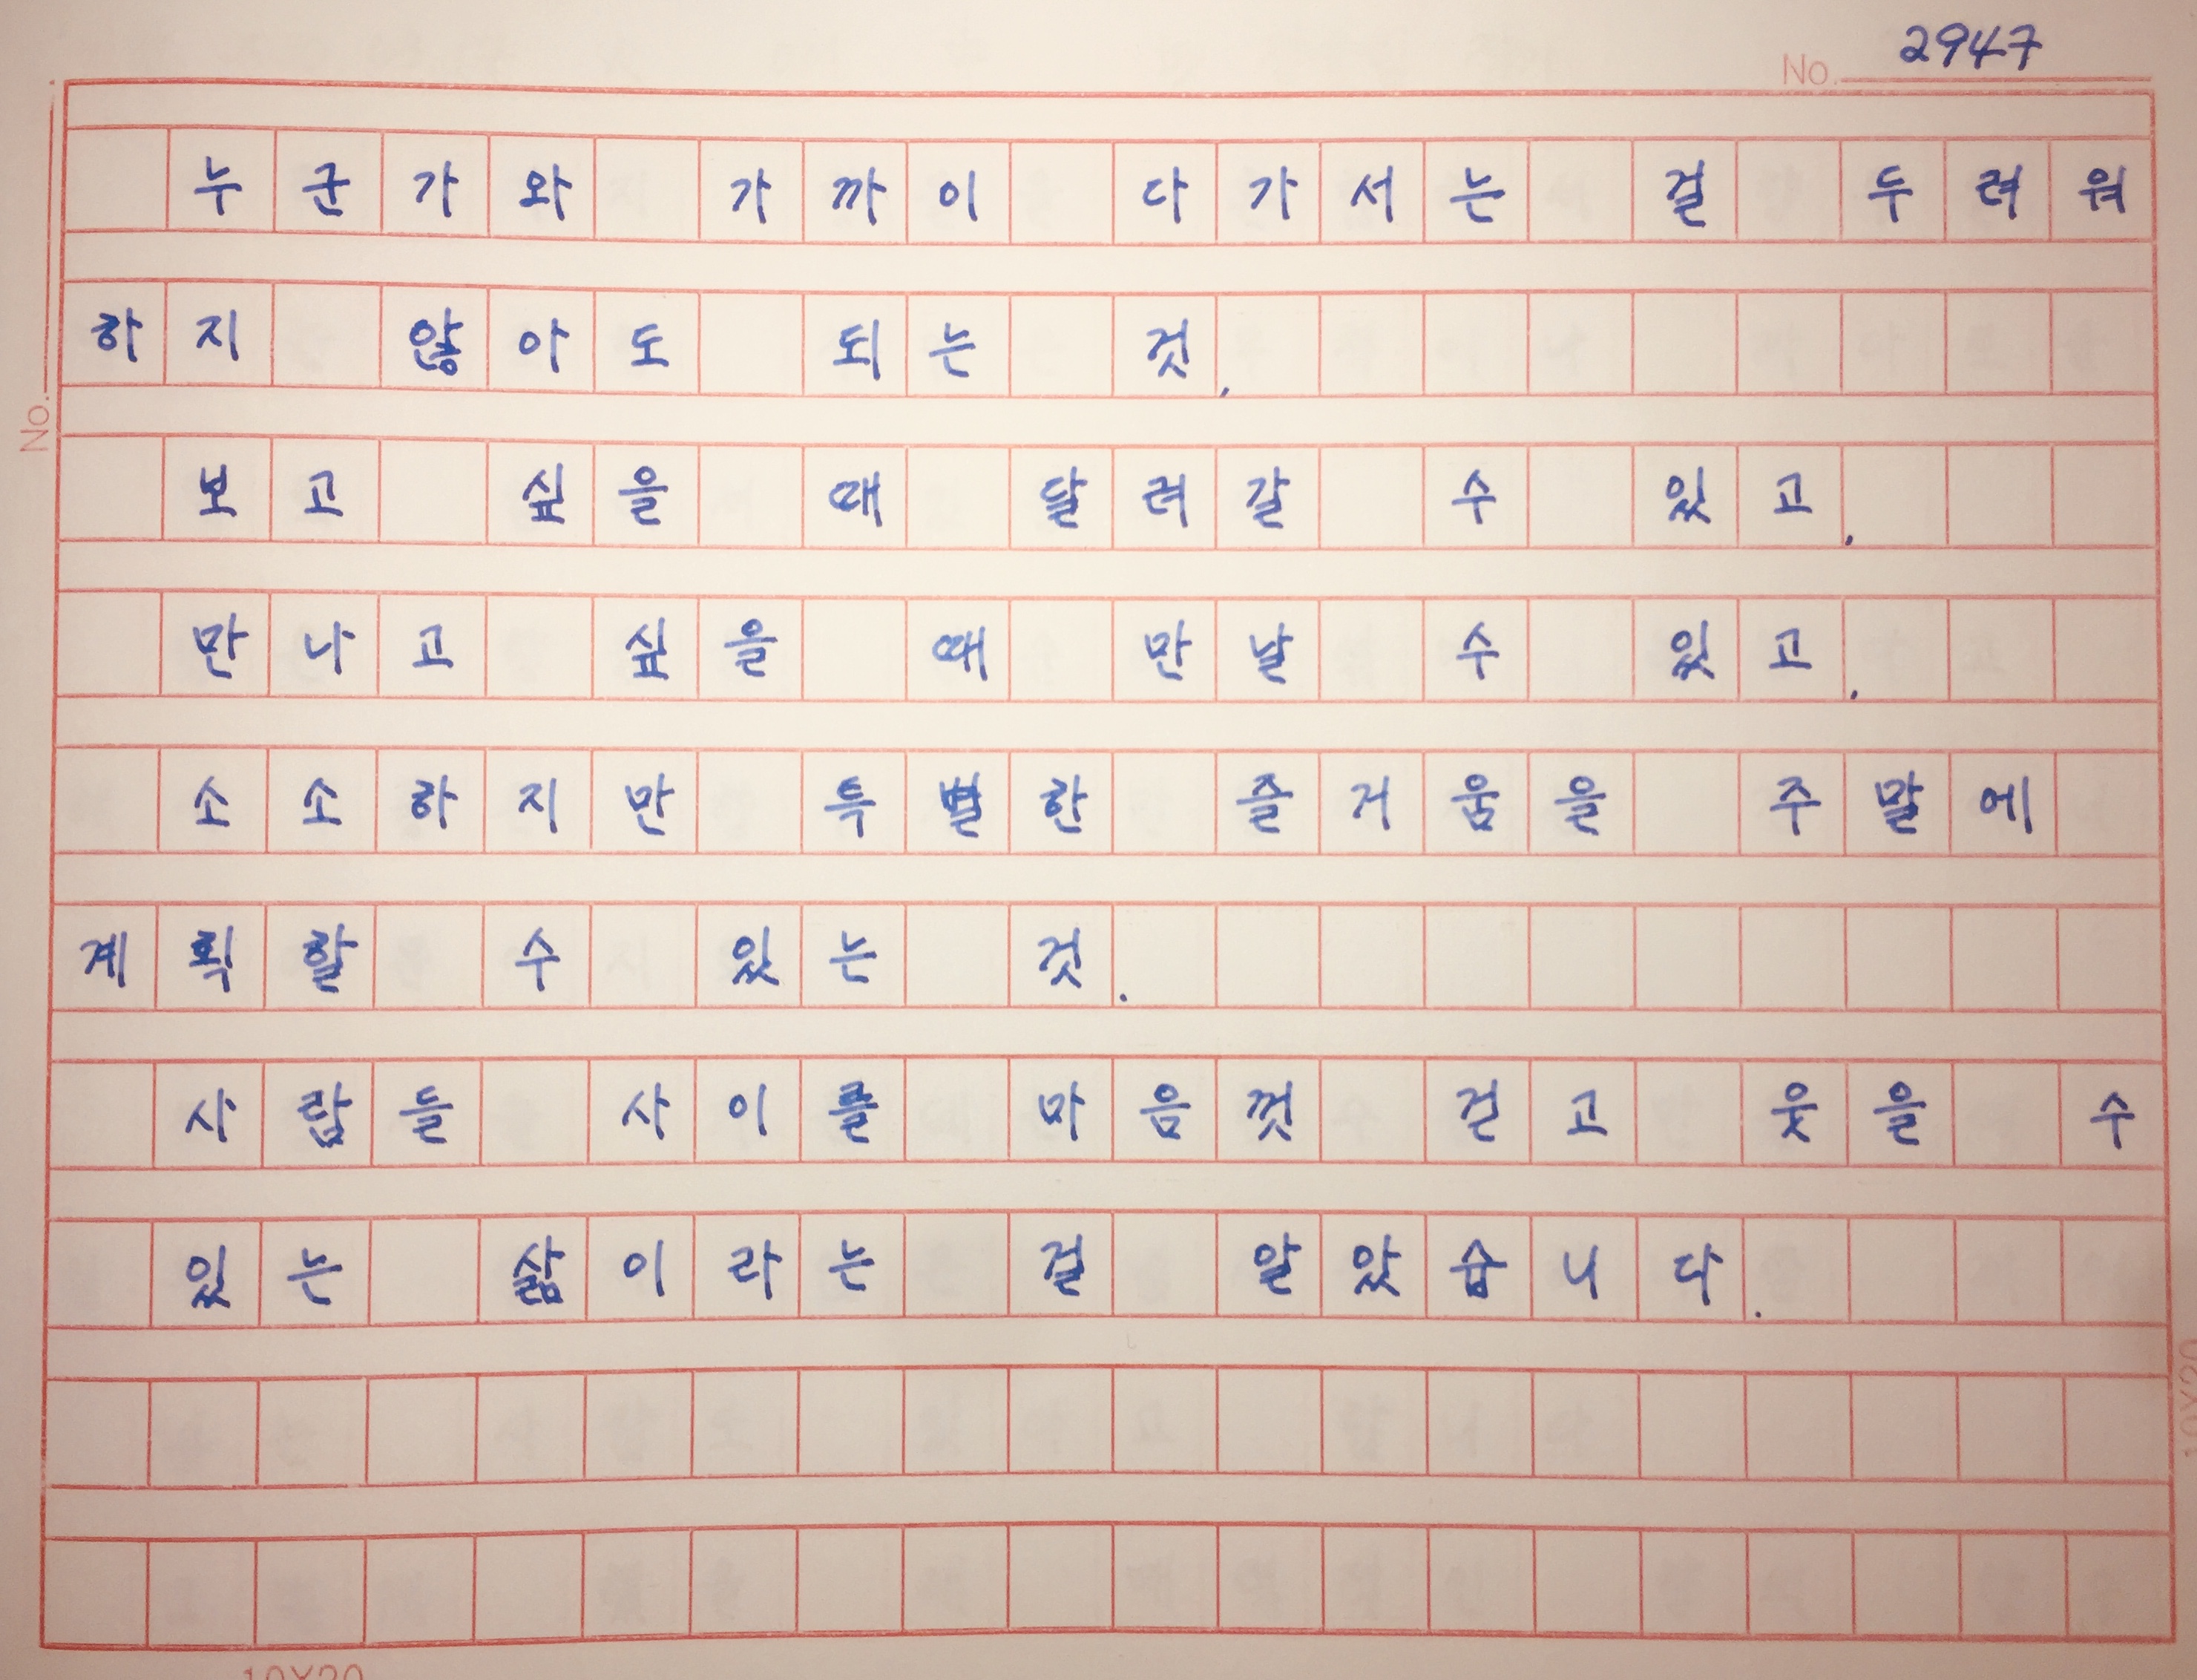 No. 2947
누군가와 가까이 다가서는 걸 두려워
하지 않아도 되는 것,
No.
보고 싶을 때 달려갈 수 있고,
만나고 싶을 때 만날 수 있고,
소소하지만 특별한 즐거움을 주말에
계획할 수 있는 것.
사람들 사이를 마음껏 걷고 웃을 수
있는 삶이라는 걸 알았습니다.
10X20
10X20